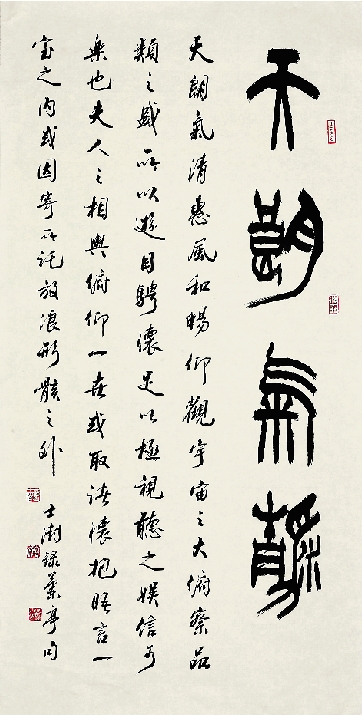 天朗氣靜
天朗氣清惠風和暢仰觀宇宙之大俯察品
類之盛所以遊目騁懷足以極視聽之娛信可
樂也夫人之相與俯仰一世或取諸懷抱晤言一
室之內或因寄所託放浪形骸之外
士澍錄蘭亭句